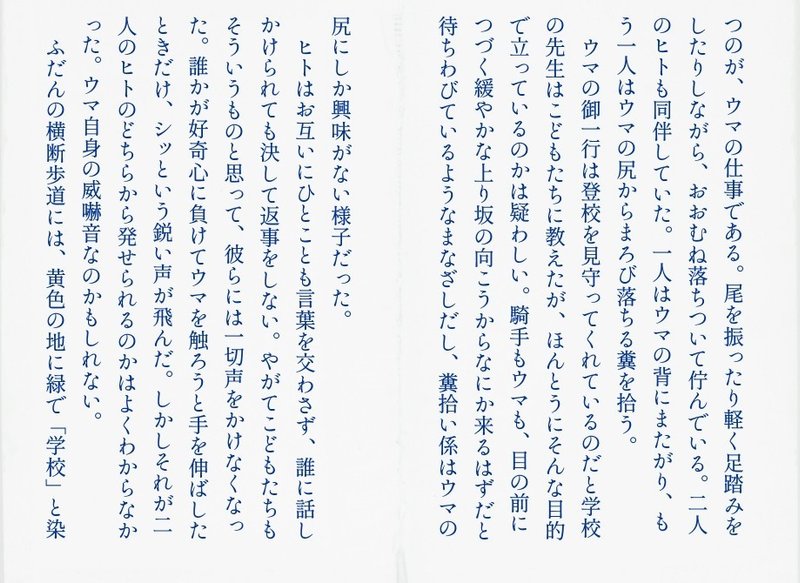 つのが、ウマの仕事である。尾を振ったり軽く足踏みを
したりしながら、おおむね落ちついて佇んでいる。二人
のヒトも同伴していた。一人はウマの背にまたがり、も
う一人はウマの尻からまろび落ちる糞を拾う。
　ウマの御一行は登校を見守ってくれているのだと学校
の先生はこどもたちに教えたが、ほんとうにそんな目的
で立っているのかは疑わしい。騎手もウマも、目の前に
つづく緩やかな上り坂の向こうからなにか来るはずだと
待ちわびているようなまなざしだし、糞拾い係はウマの
尻にしか興味がない様子だった。
　ヒトはお互いにひとことも言葉を交わさず、誰に話し
かけられても決して返事をしない。やがてこどもたちも
そういうものと思って、彼らには一切声をかけなくなっ
た。誰かが好奇心に負けてウマを触ろうと手を伸ばした
ときだけ、シッという鋭い声が飛んだ。しかしそれが二
人のヒトのどちらから発せられるのかはよくわからなか
った。ウマ自身の威嚇音なのかもしれない。
　ふだんの横断歩道には、黄色の地に緑で「学校」と染